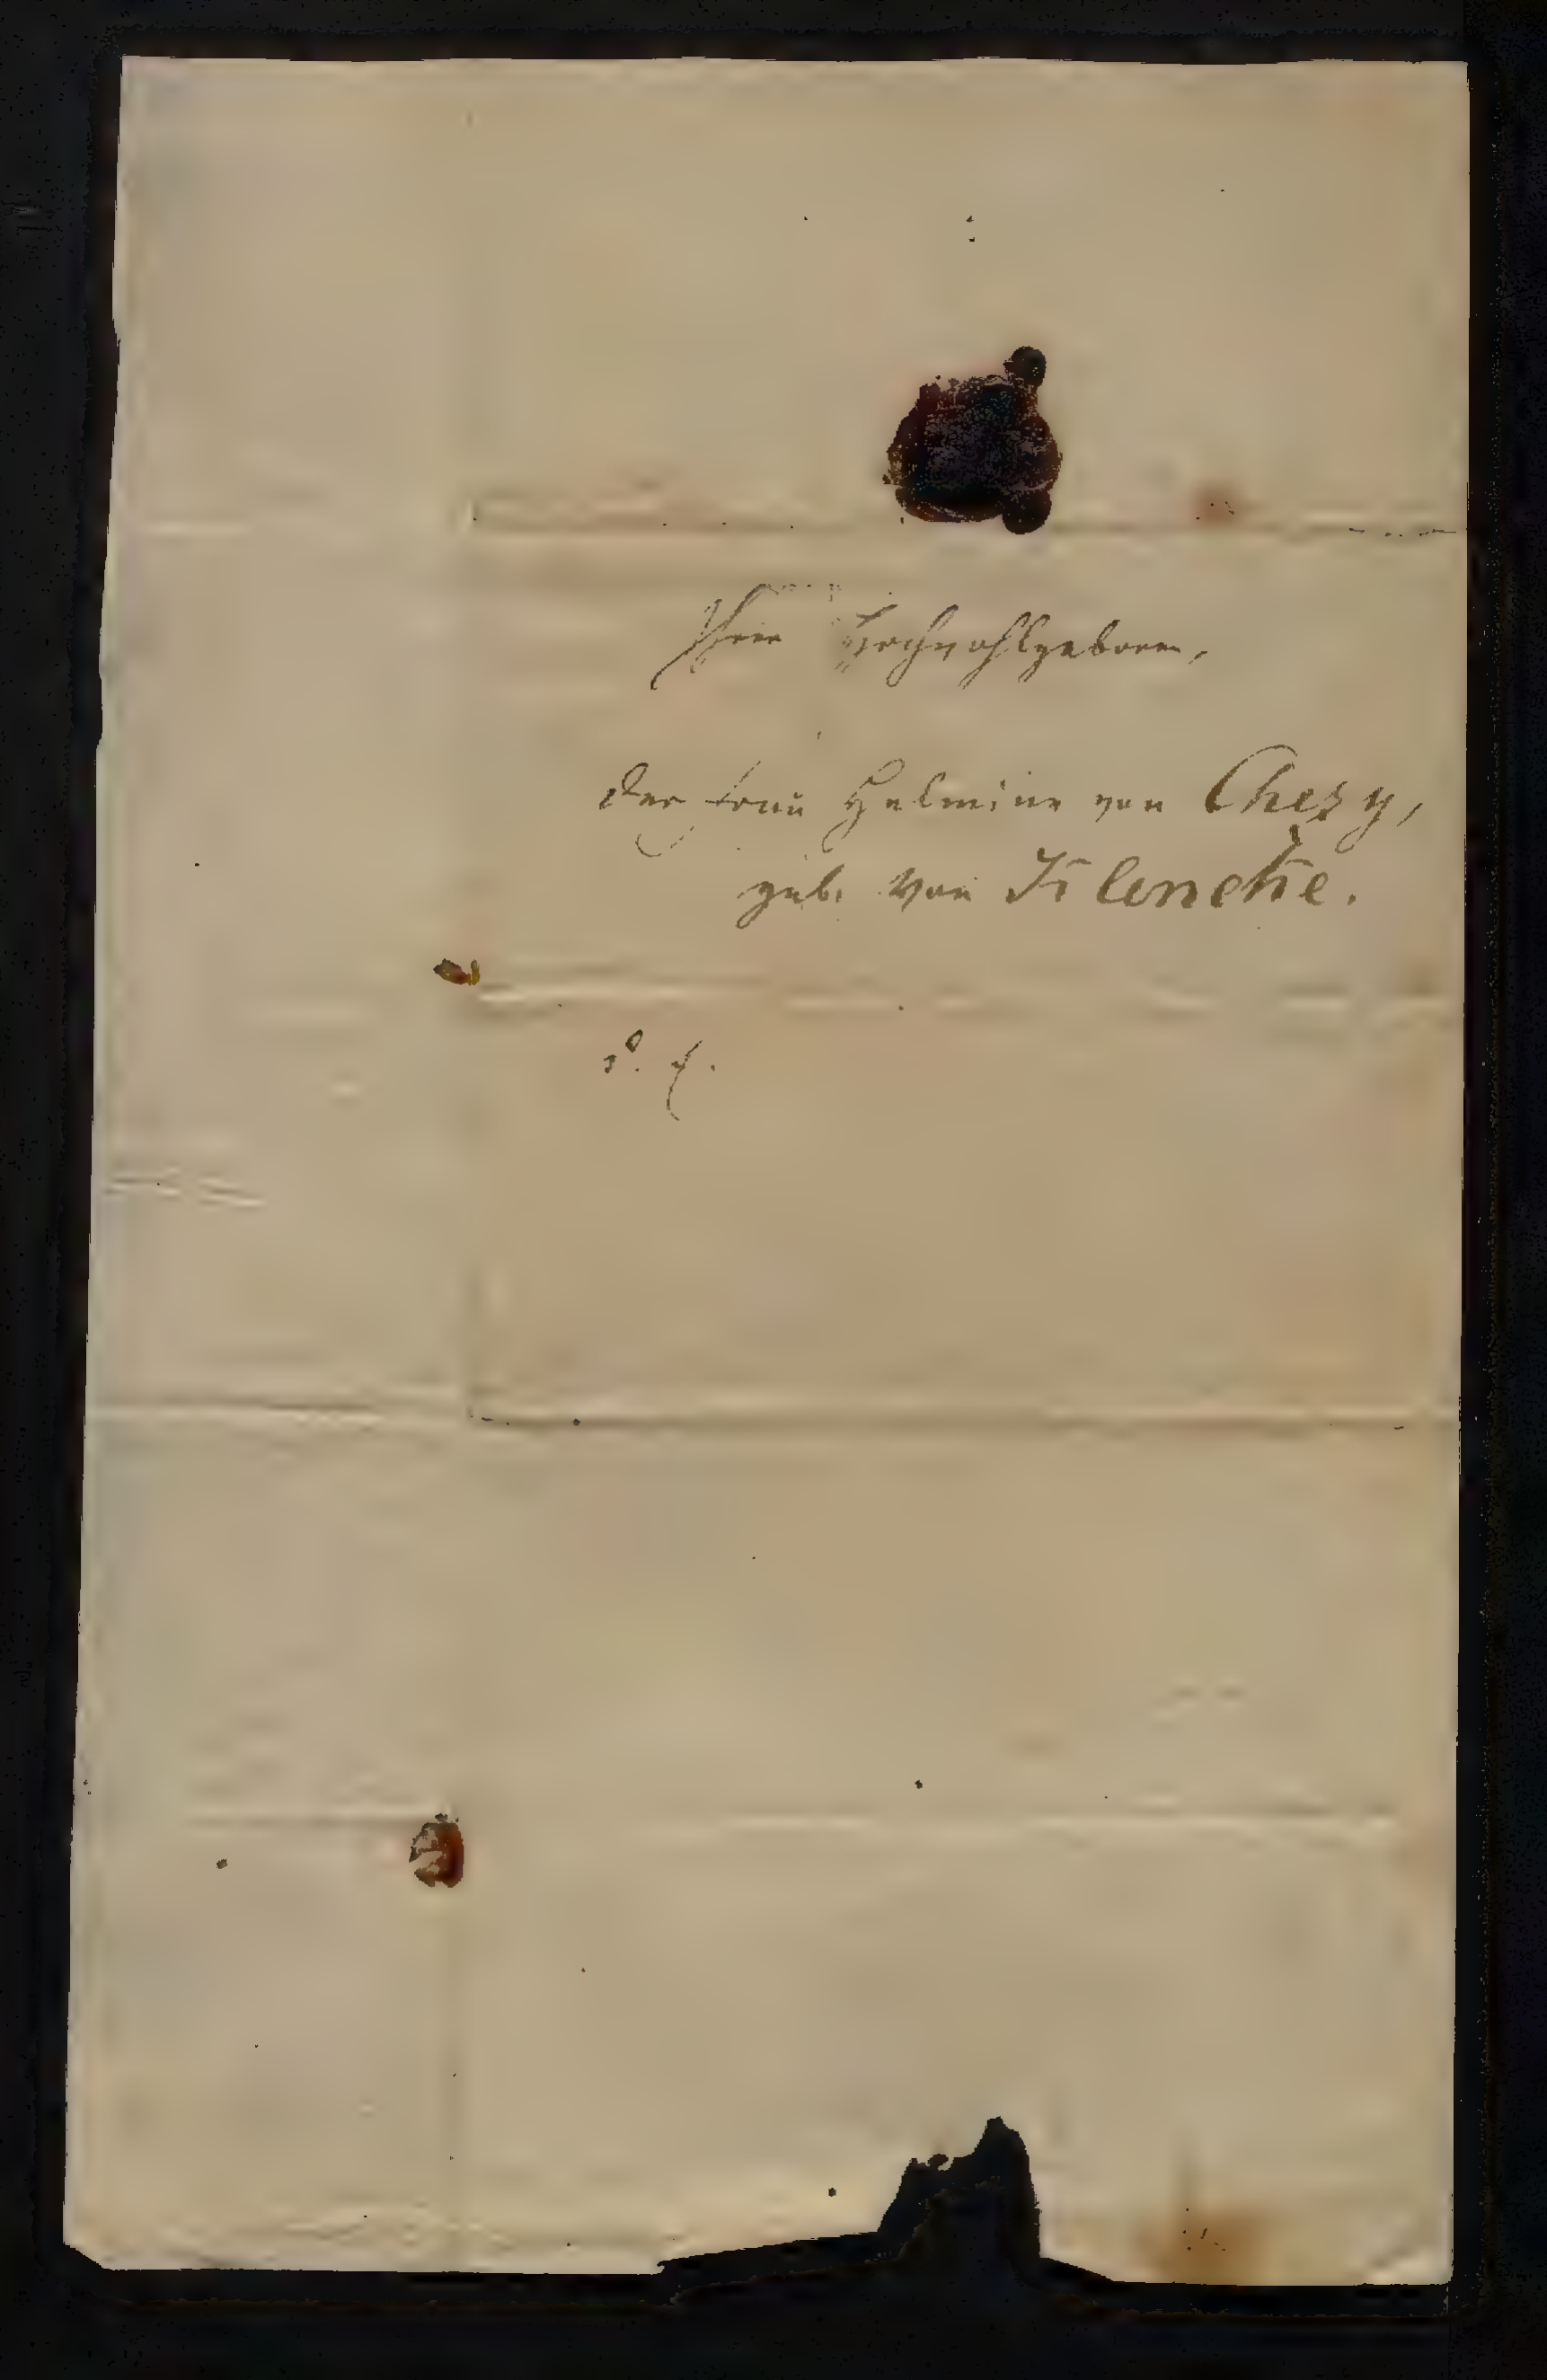 Ihro Hochwohlgeboren,
der Frau Helmine von Chezy,
geb. von Klencke.